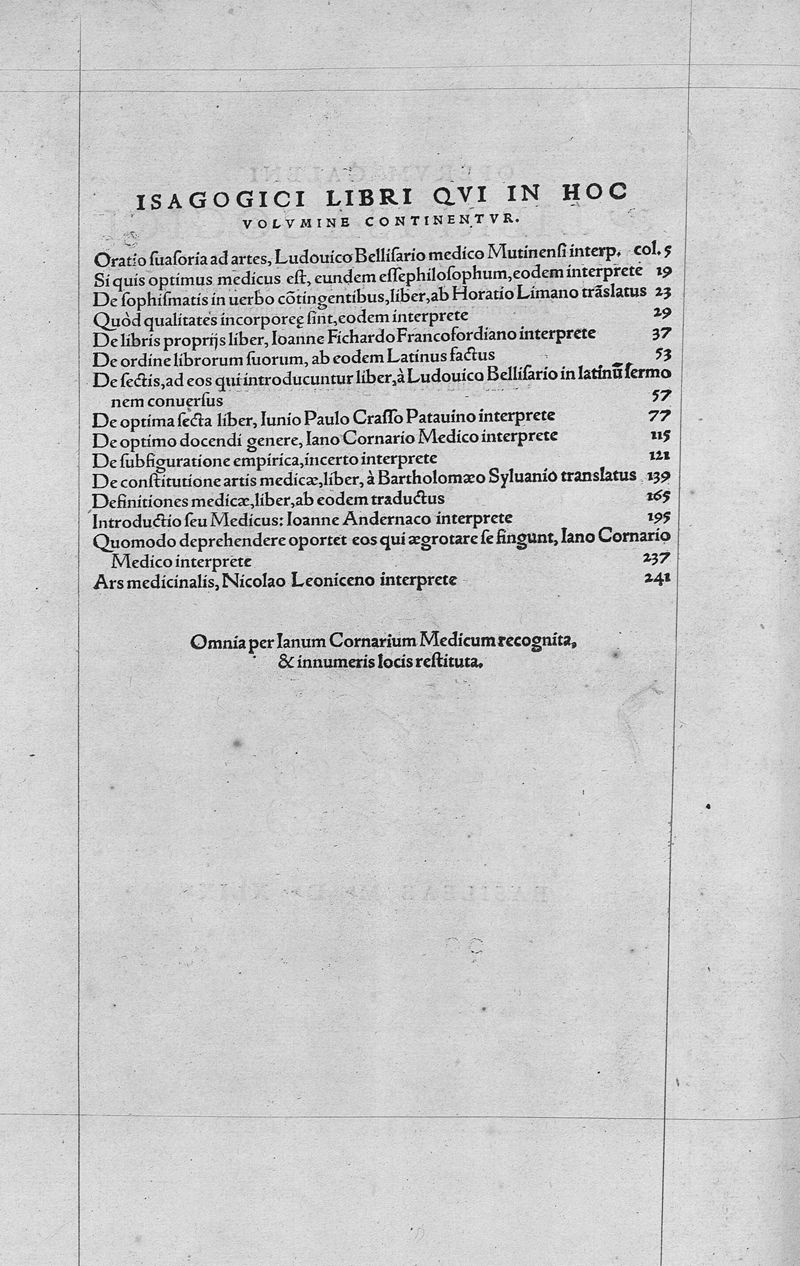 ISAGOGICI LIBRI QVI IN HOC
VOLVMINE CONTINENTVR.
Oratio ſuaſoria ad artes, Ludouico Belliſario medico Mutinenſi interp. col. 5
Si quis optimus medicus eſt, eundem eſſe philoſophum, eodem interprete 19
De ſophiſmatis in uerbo cõtingentibus, liber, ab Horatio Limano trãslatus 23
Quòd qualitates incorporeę ſint, eodem interprete 29
De libris proprijs liber, Ioanne Fichardo Francofordiano interprete 37
De ordine librorum ſuorum, ab eodem Latinus factus 53
De ſectis, ad eos qui introducuntur liber, à Ludouico Belliſario in latinũ ſermo
nem conuerſus 57
De optima ſecta liber, Iunio Paulo Craſſo Patauino interprete 77
De optimo docendi genere, Iano Cornario Medico interprete 115
De ſubfiguratione empirica, incerto interprete 121
De conſtitutione artis medicæ, liber, à Bartholomæo Syluanio translatus 139
Definitiones medicæ, liber, ab eodem traductus 165
Introductio ſeu Medicus: Ioanne Andernaco interprete 195
Quomodo deprehendere oportet eos qui ægrotare ſe fingunt, Iano Cornario
Medico interprete 237
Ars medicinalis, Nicolao Leoniceno interprete 241
Omnia per Ianum Cornarium Medicum recognita,
& innumeris locis reſtituta.